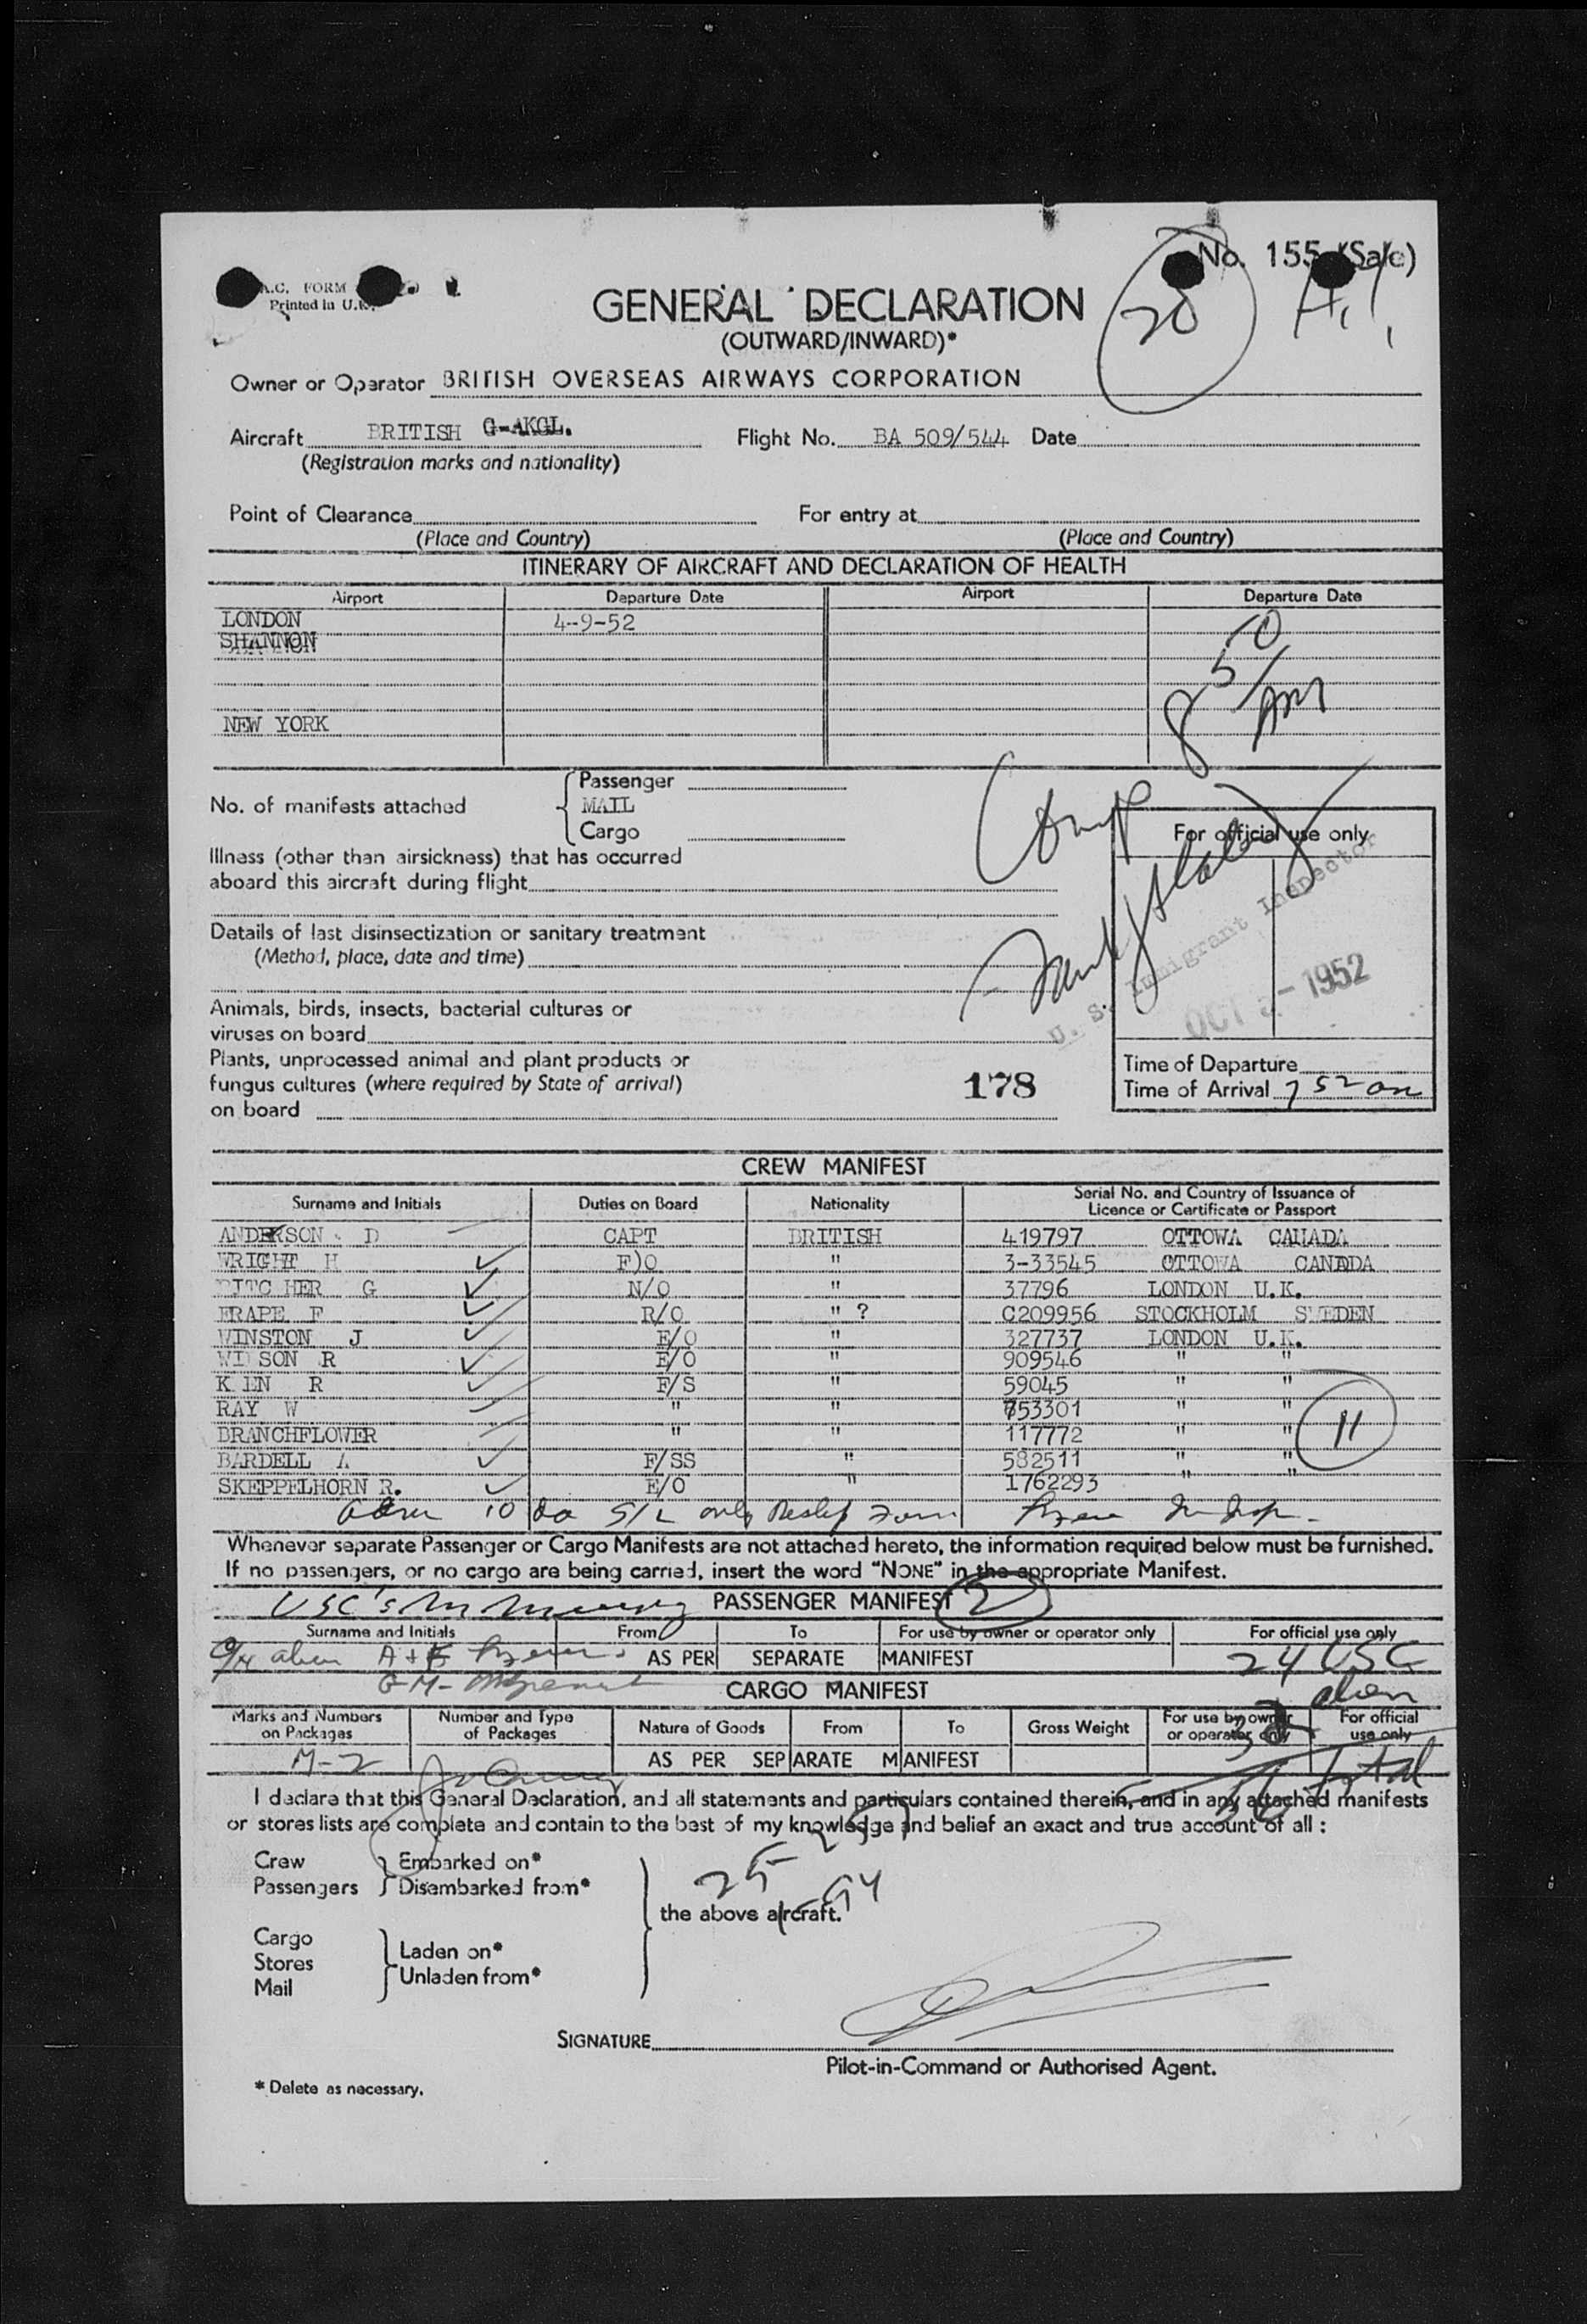 No. 155 (Sale)
A.C. FORM
Printed in U.K.
GENERAL DECLARATION
20
(OUTWARD/INWARD)*
Owner or Operator BRITISH OVERSEAS AIRWAYS CORPORATION
Aircraft BRITISH G-AKGL. Flight No. BA 509/544 Date
(Registration marks and nationality)
Point of Clearance For entry at
(Place and Country) (Place and Country)
ITINERARY OF AIRCRAFT AND DECLARATION OF HEALTH
Airport Departure Date Airport Departure Date
LONDON 4-9-52
SHANNON
8 50 AM
NEW YORK
Passenger
No. of manifests attached MAIL
Cargo
For official use only
Illness (other than airsickness) that has occurred
aboard this aircraft during flight
Details of last disinsectization or sanitary treatment
(Method, place, date and time)
U. S. Immigrant Inspector
OCT 1952
Animals, birds, insects, bacterial cultures or
viruses on board
Plants, unprocessed animal and plant products or
fungus cultures (where required by State of arrival)
on board
178
Time of Departure
Time of Arrival 7 52 am
CREW MANIFEST
Surname and Initials Duties on Board Nationality Serial No. and Country of Issuance of
Licence or Certificate or Passport
ANDERSON D CAPT BRITISH 419797 OTTOWA CANADA
WRIGHT H F)O " 3-33545 OTTOWA CANADA
PITCHER G N/O " 37796 LONDON U.K.
FRAPE F R/O " ? C209956 STOCKHOLM SWEDEN
WINSTON J E/O " 327737 LONDON U.K.
SON R E/O " 909546 " "
R F/S " 59045 " "
RAY W " " 753301 " "
BRANCHFLOWER " " 117772 " "
11
BARDELL A F/SS " 582511 " "
SKEPPELHORN R. E/O " 1762293 " "
10 S/L only
Whenever separate Passenger or Cargo Manifests are not attached hereto, the information required below must be furnished.
If no passengers, or no cargo are being carried, insert the word “NONE” in the appropriate Manifest.
USC's PASSENGER MANIFEST 2
Surname and Initials From To For use by owner or operator only For official use only
alien A+E AS PER SEPARATE MANIFEST 24 USC
CARGO MANIFEST alien
Marks and Numbers on Packages Number and Type of Packages Nature of Goods From To Gross Weight For use by owner or operator only For official use only
M-2 AS PER SEPARATE MANIFEST Total
I declare that this General Declaration, and all statements and particulars contained therein, and in any attached manifests
or stores lists are complete and contain to the best of my knowledge and belief an exact and true account of all :
Crew Embarked on*
Passengers Disembarked from*
25
the above aircraft.
Cargo
Stores Laden on*
Mail Unladen from*
SIGNATURE
Pilot-in-Command or Authorised Agent.
* Delete as necessary.